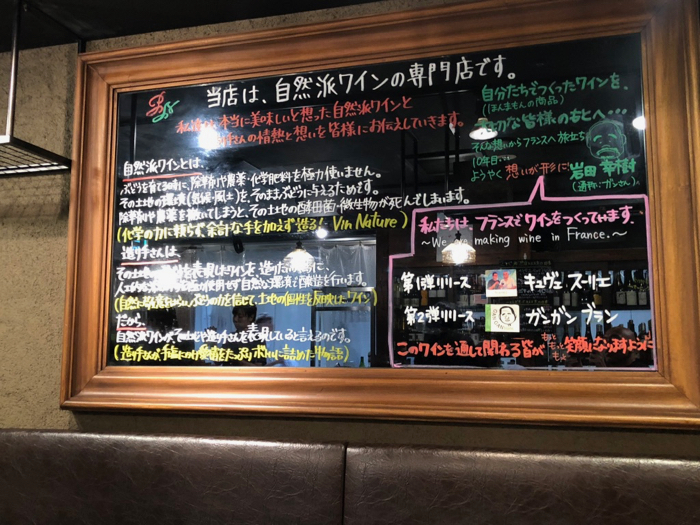 当店は、自然派ワインの専門店です。
本当に美味しいと想った自然派ワインと
さんの情熱と想いを皆様にお伝えしていきます。
自然派ワインとは、
ぶどうを育てる時に、除草剤や農薬・化学肥料を極力使いません。
その土地の環境(気候・風土)を、そのままぶどうに与えるためです。
除草剤や農薬を撒いてしまうと、その土地の酵母菌・微生物が死んでしまいます。
(化学の力に頼らず、余計な手を加えず造る！Vin Nature)
造り手さんは、
その土地の を表現したワインを造るために、
使用せず自然な環境で醸造を行います。
ぶどうの力を信じて、土地の個性を反映したワイン)
だから、
自然派ワインが、その土地や造り手さんを表現していると言えるのです。
(造り手さんが、手塩にかけ愛情をたっぷりボトルに詰めた物語)
自分たちでつくったワインを、
(ほんまもんの商品)
な皆様のもとへ・・・
そんな想いからフランスへ旅立ち
10年目
ようやく想いが形に！
岩田幸樹
(通称：ガンさん)
私たちは フランスで ワインをつくっています
〜We are making wine in France.〜
第1弾リリース キュヴェ スーリエ
第2弾リリース ガンガン ブラン
このワインを通して関わる皆が もっと もっと もっと 笑顔になりますように